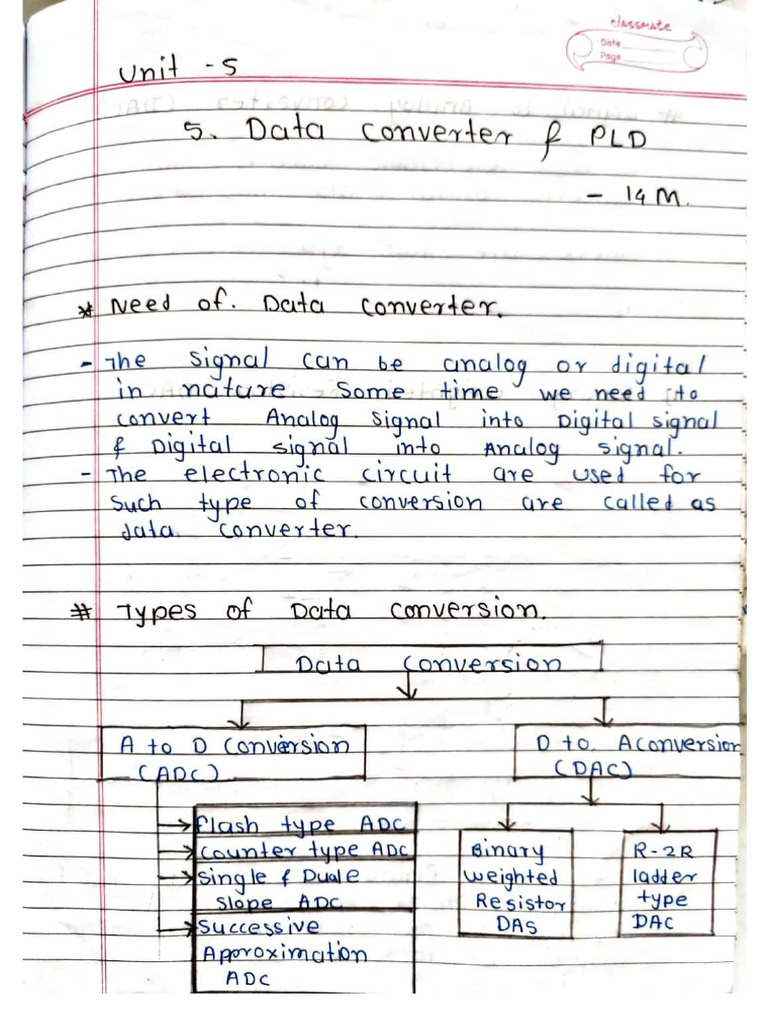 classmate
Date
Page
Unit - 5
5. Data Converter & PLD
- 14 M.
* Need of. Data Converter.
- The signal can be analog or digital
in nature Some time we need to
convert Analog Signal into Digital signal
& Digital signal into Analog signal.
- The electronic circuit are used for
such type of conversion are called as
data converter.
# Types of Data Conversion.
Data Conversion
A to D Conversion
(ADC)
D to A conversion
(DAC)
flash type ADC
counter type ADC
single & Duale
slope ADC
Successive
Approximation
ADC
Binary
weighted
Resistor
DAS
R-2R
ladder
type
DAC